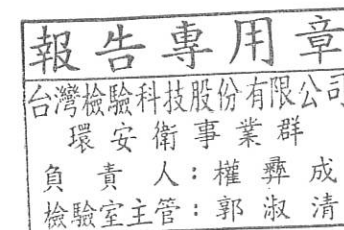 報告專用章
台灣檢驗科技股份有限公司
環安衛事業群
負責人:權彝成
檢驗室主管:郭淑清